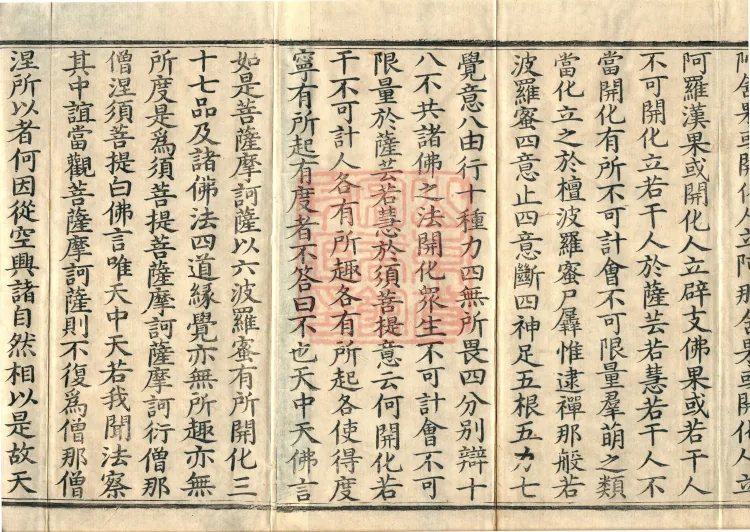 含果或開化人立阿那含果或開化人立
阿羅漢果或開化人立辟支佛果或若干人
不可開化立若干人於薩芸若慧若干人不
當開化有所不可計會不可限量羣萌之類
當化立之於檀波羅蜜尸羼惟逮禪那般若
波羅蜜四意止四意斷四神足五根五力七
覺意八由行十種力四無所畏四分別辯十
八不共諸佛之法開化眾生不可計會不可
限量於薩芸若慧於須菩提意云何開化若
干不可計人各有所趣各有所起各使得度
寧有所起有度者不答曰不也天中天佛言
如是菩薩摩訶薩以六波羅蜜有所開化三
十七品及諸佛法四道緣覺亦無所趣亦無
所度是爲須菩提菩薩摩訶薩摩訶衍僧那
僧涅須菩提白佛言唯天中天若我聞法察
其中誼當觀菩薩摩訶薩則不復爲僧那僧
涅所以者何因從空興諸自然相以是故天